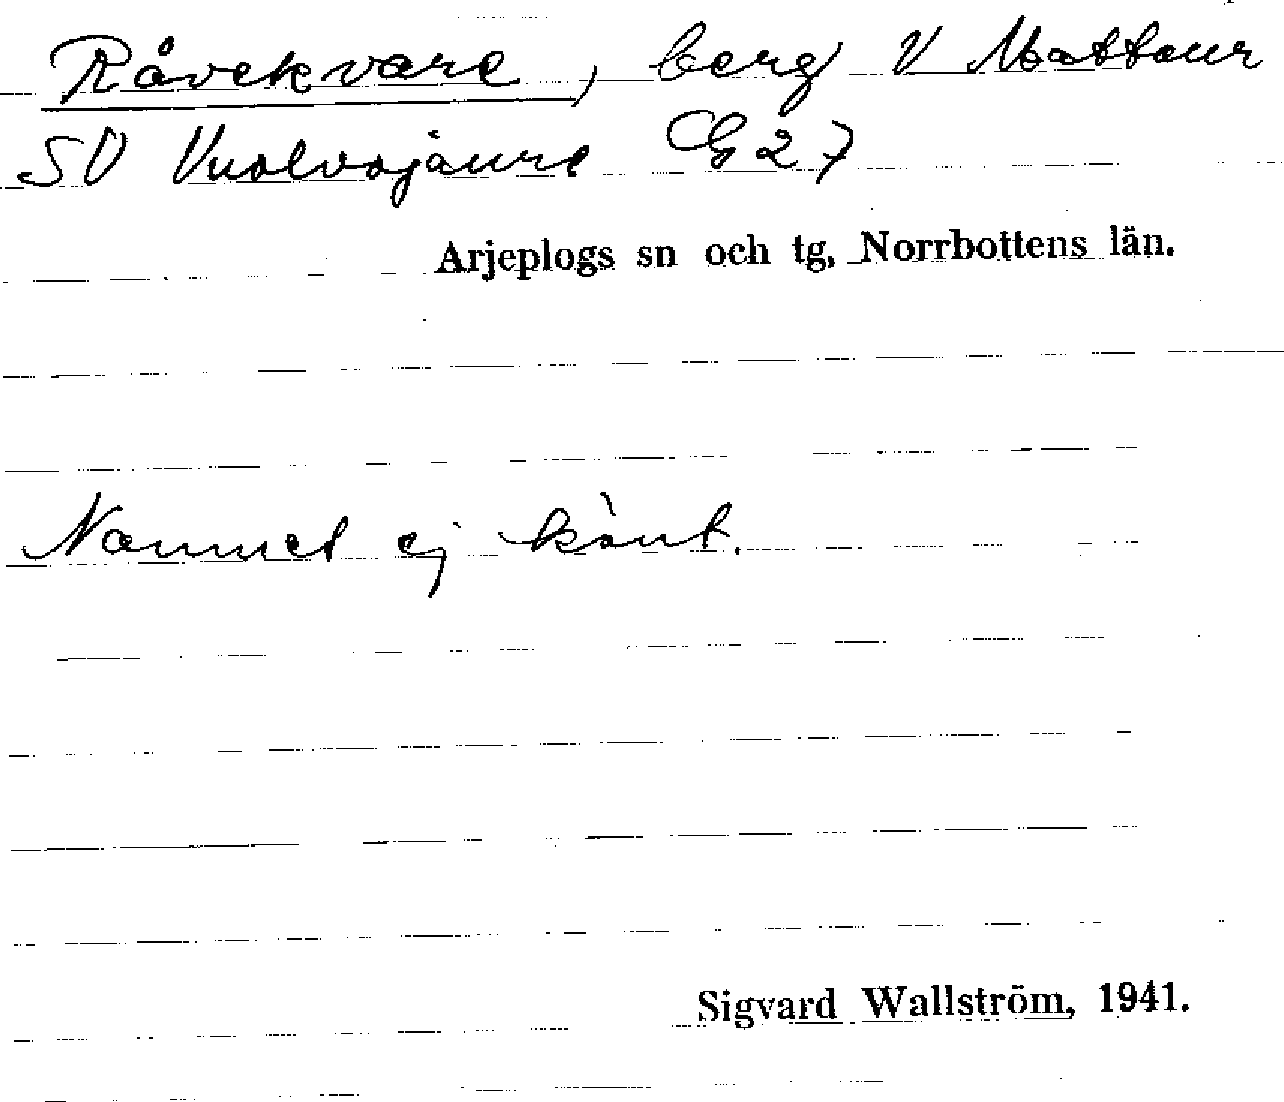 Råvekvare, berg V Mattaur
SV Vuolvojaure G 27
Arjeplogs sn och tg, Norrbottens län.
Namnet ej känt.
Sigvard Wallström, 1941.